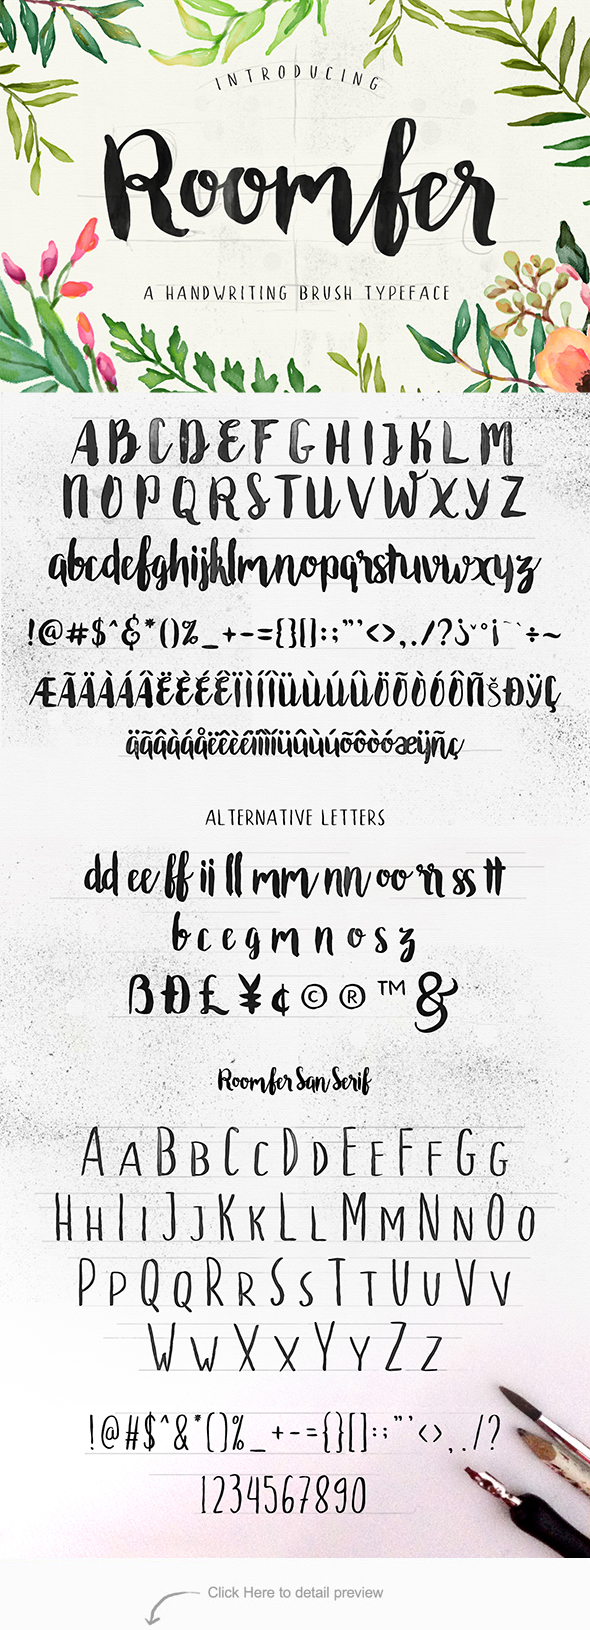 INTRODUCING
Roomfer
A HANDWRITING BRUSH TYPEFACE
ABCDEFGHIJKLM
NOPQRSTUVWXYZ
abcdefghijklmnopqrstuvwxyz
!@#$^&*()%_+-={}[]:;"'<>,./?
ÆÃÄÀÁÂËÈÉÊÏÌÍÎÜÙÚÛÖÕÒÓÔÑŠÐŸÇ
äãâàáåëêèéïîìíüûùúõôòóæÿñç
ALTERNATIVE LETTERS
dd ee ff ii ll mm nn oo rr ss tt
b c e g m n o s z
ß Ð £ ¥ ¢ © ® ™ &
Roomfer San Serif
AaBbCcDdEeFfGg
HhIiJjKkLlMmNnOo
PpQqRrSsTtUuVv
WwXxYyZz
!@#$^&*()%_+-={}[]:;"'<>,./?
1234567890
Click Here to detail preview